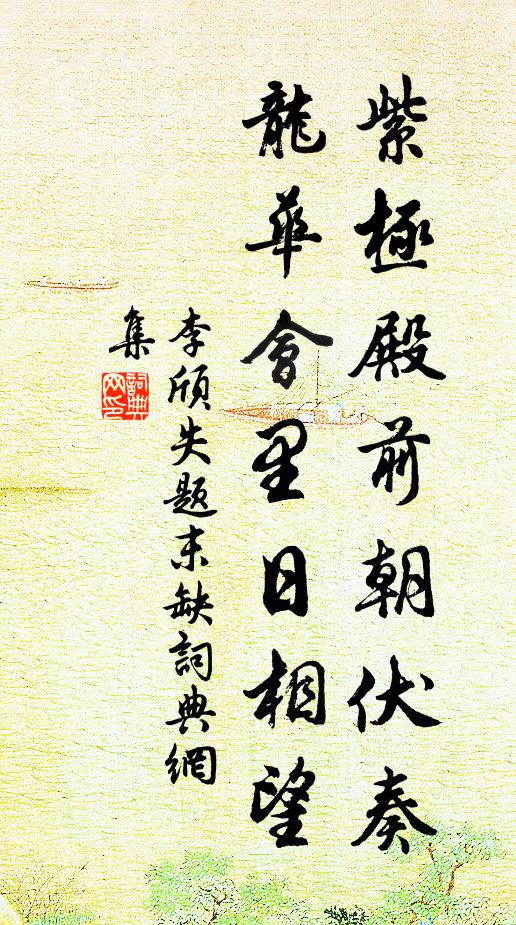 紫極殿前朝伏奏
龍華會里日相望
李頎失题末缺詞典網
集
詞典
网印